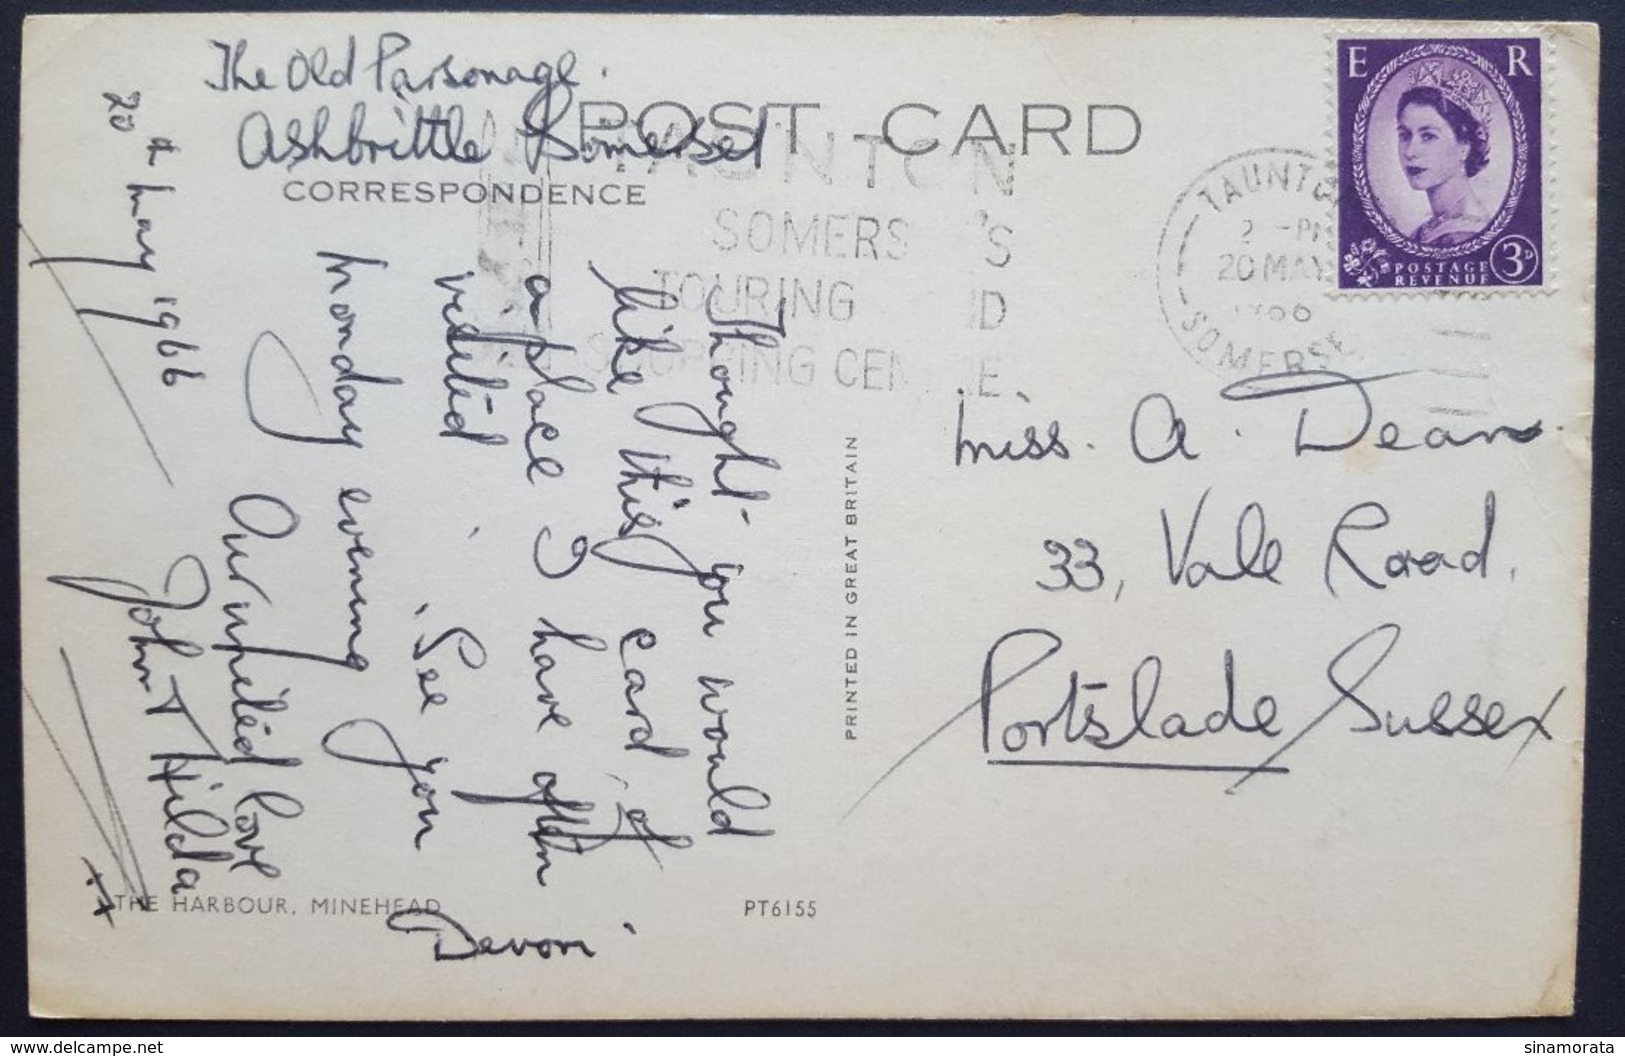 The Old Parsonage.
Ashbrittle Somerset
20th May 1966
POST CARD
CORRESPONDENCE
Thought you would
like this card, of
a place I have often
visited. See you
Monday evening
Our united love
John + Hilda
xx
THE HARBOUR, MINEHEAD
Devon
PT6155
PRINTED IN GREAT BRITAIN
TAUNTON
SOMERSET'S
TOURING AND
SHOPPING CENTRE
TAUNTON
2 - PM
20 MAY
1966
SOMERSET
E R
POSTAGE
REVENUE
3D
Miss. A. Dean.
33, Vale Road,
Portslade Sussex
delcampe.net
sinamorata